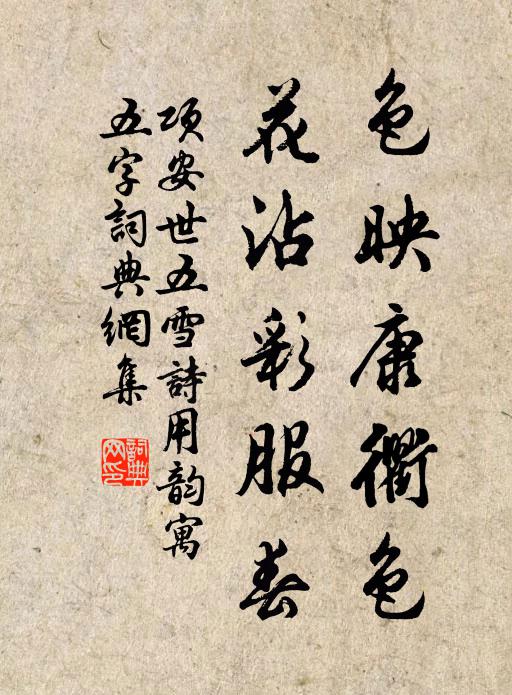 色映康衢色
花沾彩服春
項安世五雪詩用韵寓
五字詞典網集
詞典网印